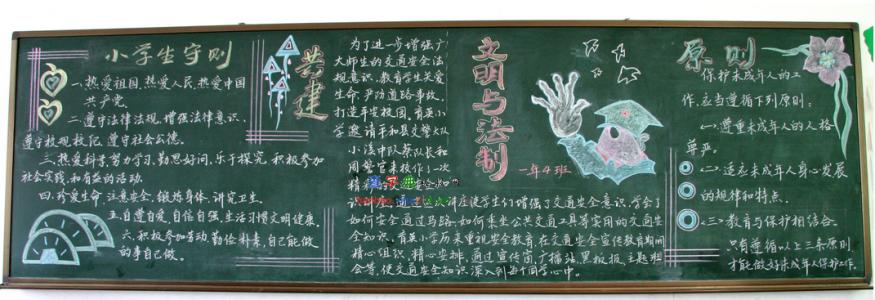 小学生守则
一、热爱祖国，热爱人民，热爱中国
共产党。
二、遵守法律法规，增强法律意识，
遵守校规校纪，遵守社会公德。
三、热爱科学，努力学习，勤思好问，乐于探究，积极参加
社会实践和有益的活动。
四、珍爱生命，注意安全，锻炼身体，讲究卫生。
五、自尊自爱，自信自强，生活习惯文明健康。
六、积极参加劳动，勤俭朴素，自己能做
的事自己做。
共建
为了进一步增强广
大师生的交通安全法
规意识，教育学生关爱
生命，严防道路事故，
打造平安校园，育英小
学邀请平和县交警大队
小溪中队蔡队长和
周警官来校作了一次
讲座使学生们增强了交通安全意识，学会了
如何安全通过马路、如何乘坐公共交通工具等实用的交通安
全知识。育英小学历来重视安全教育，在交通安全宣传教育期间
精心组织，精心安排，通过宣传窗、广播站、黑板报、主题班
会等，使交通安全知识深入到每个同学心中。
文明与法制
一年4班
原则
保护未成年人的工
作，应当遵循下列原则：
（一）尊重未成年人的人格
尊严。
（二）适应未成年人身心发展
的规律和特点。
（三）教育与保护相结合。
只有遵循以上三条原则
才能做好未成年人保护工作。